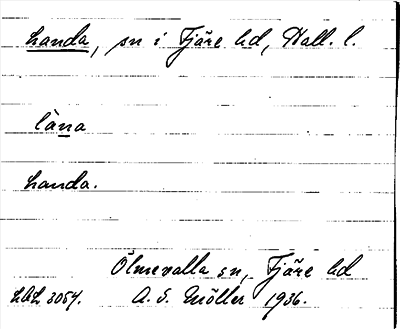 Landa, sn i Fjäre hd, Hall. l.
lana
Landa.
Ölmevalla sn, Fjäre hd
LAL 3054. A. S. Möller 1936.